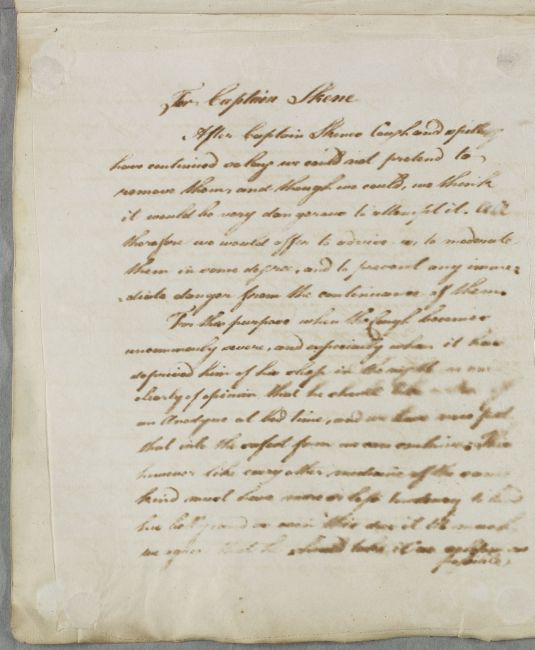 For Captain Skene
After Captain Skenes Cough and spitting
have continued so long we could not pretend to
remove them, and though we could, we think
it would be very dangerous to attempt it. All
therefore we would offer to advise is, to moderate
them in some degree, and to prevent any imme=
=diate danger from the continuance of them.
For this purpose when the Cough becomes
uncommonly severe, and especially when it has
deprived him of his sleep in the night we are
clearly of opinion that he should take
an Anodyne at bed time, and we have
that into the safest form we can contrive. This
however like every other medicine of the same
kind must have more or less tendency to bind
his belly and
we agree that he should take it as seldom as
possible,